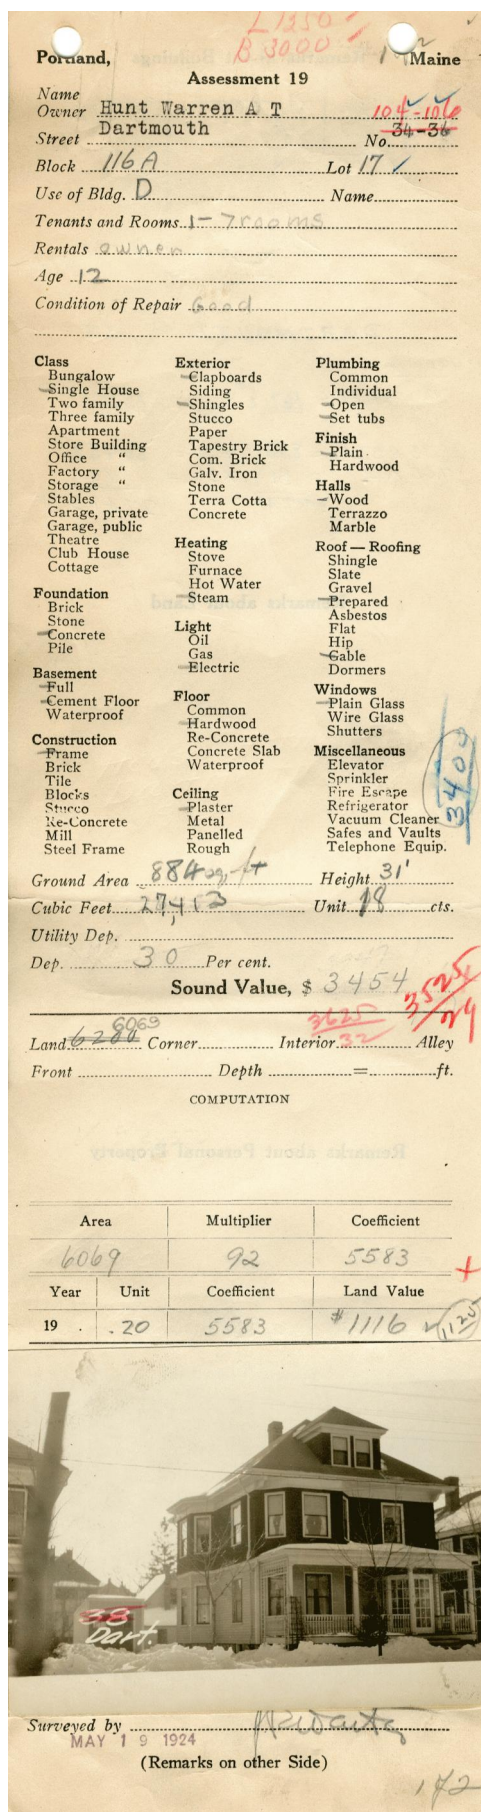 L 1250
B 3000
Portland, Maine
Assessment 19
Name
Owner Hunt Warren A T 104-106
Street Dartmouth No. 34-36
Block 116A Lot 17
Use of Bldg. D Name
Tenants and Rooms 1-7 rooms
Rentals owner
Age 12
Condition of Repair Good
Class
Bungalow
Single House
Two family
Three family
Apartment
Store Building
Office "
Factory "
Storage "
Stables
Garage, private
Garage, public
Theatre
Club House
Cottage
Foundation
Brick
Stone
Concrete
Pile
Basement
Full
Cement Floor
Waterproof
Construction
Frame
Brick
Tile
Blocks
Stucco
Re-Concrete
Mill
Steel Frame
Exterior
Clapboards
Siding
Shingles
Stucco
Paper
Tapestry Brick
Com. Brick
Galv. Iron
Stone
Terra Cotta
Concrete
Heating
Stove
Furnace
Hot Water
Steam
Light
Oil
Gas
Electric
Floor
Common
Hardwood
Re-Concrete
Concrete Slab
Waterproof
Ceiling
Plaster
Metal
Panelled
Rough
Plumbing
Common
Individual
Open
Set tubs
Finish
Plain
Hardwood
Halls
Wood
Terrazzo
Marble
Roof — Roofing
Shingle
Slate
Gravel
Prepared
Asbestos
Flat
Hip
Gable
Dormers
Windows
Plain Glass
Wire Glass
Shutters
Miscellaneous
Elevator
Sprinkler
Fire Escape
Refrigerator
Vacuum Cleaner
Safes and Vaults
Telephone Equip.
3404
Ground Area 884 sq. ft Height 31'
Cubic Feet 27,413 Unit 18 cts.
Utility Dep.
Dep. 30 Per cent.
Sound Value, $ 3454
3525/29
6069 3625
Land 6200 Corner Interior 32 Alley
Front Depth = ft.
COMPUTATION
Area Multiplier Coefficient
6069 92 5583
Year Unit Coefficient Land Value
19 . .20 5583 $1116 1125
38
Dart.
Surveyed by
MAY 19 1924
(Remarks on other Side)
172